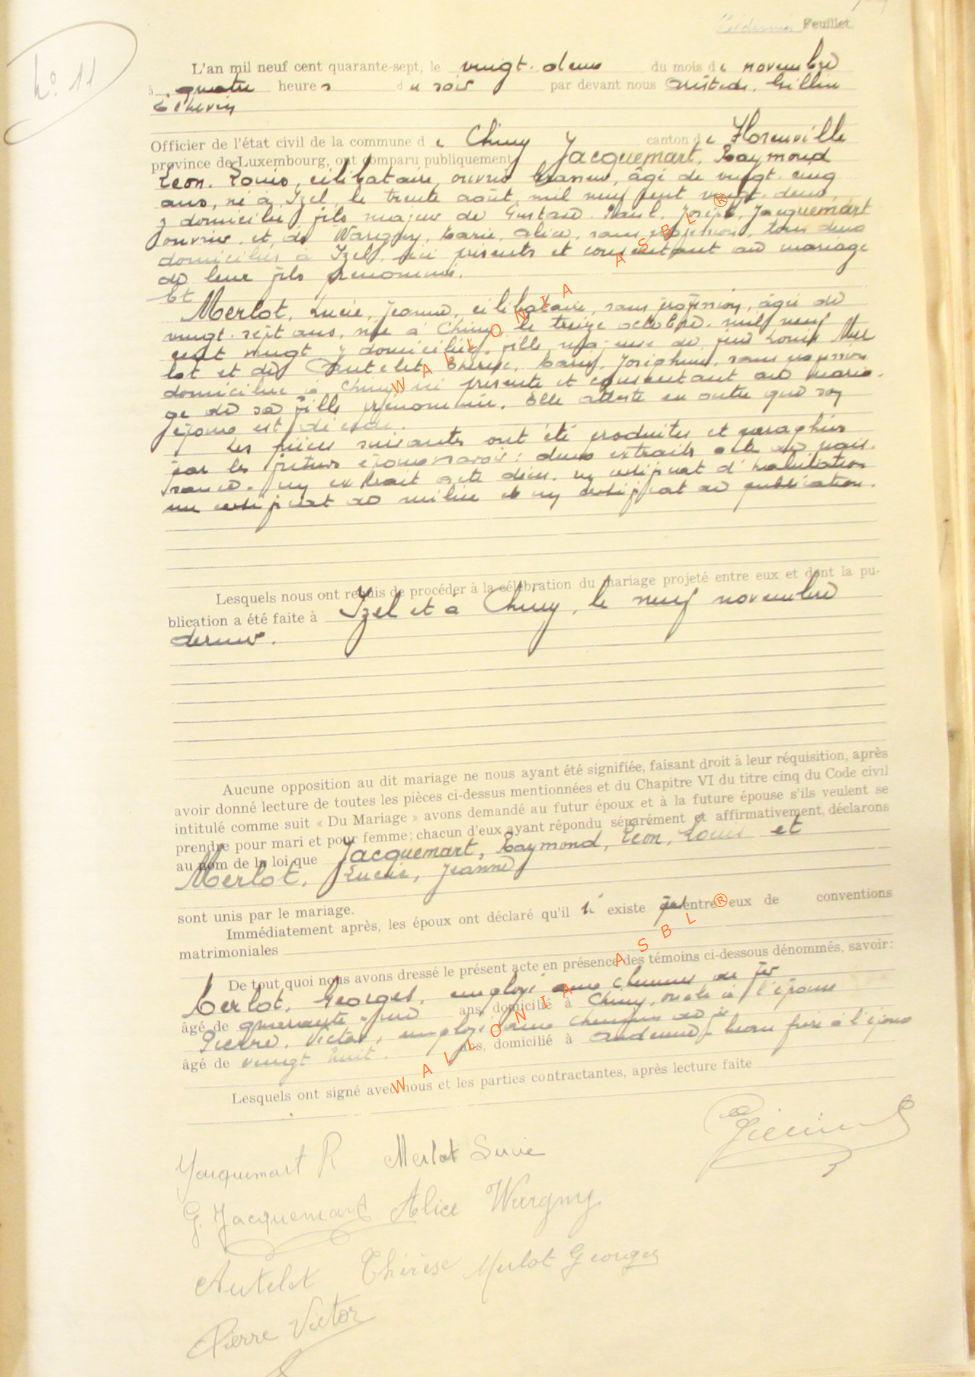 Feuillet
N° 11
L'an mil neuf cent quarante-sept, le vingt-deux du mois de novembre
à quatre heures du soir par devant nous Aristide Gillin
Echevin
Officier de l'état civil de la commune de Chiny canton de Florenville
province de Luxembourg, ont comparu publiquement Jacquemart, Raymond
Léon, Louis, célibataire, ouvrier, âgé de vingt-cinq
ans, né à Izel, le trente août, mil neuf cent vingt-deux,
y domicilié, fils majeur de Gustave, Paul, Joseph, Jacquemart
ouvrier, et de Wargny, Marie, Alice, sans profession, tous deux
domiciliés à Izel, ici présents et consentant au mariage
de leur fils prénommé.
Et
Merlot, Lucie, Jeanne, célibataire, sans profession, âgée de
vingt-sept ans, née à Chiny le treize octobre, mil neuf
cent vingt y domiciliée, fille majeure de feu Louis Mer
lot et de Autelet Thérèse, Marie, Joséphine, sans profession
domiciliée à Chiny ici présente et consentant au maria-
ge de sa fille prénommée. Elle atteste en outre que son
époux est décédé.
Les pièces suivantes ont été produites et paraphées
par les futurs époux savoir: deux extraits acte de nais-
sance. un extrait acte décès. un certificat d'habitation
un certificat de milice et un certificat de publication.
Lesquels nous ont requis de procéder à la célébration du mariage projeté entre eux et dont la pu-
blication a été faite à Izel et à Chiny, le neuf novembre
dernier.
Aucune opposition au dit mariage ne nous ayant été signifiée, faisant droit à leur réquisition, après
avoir donné lecture de toutes les pièces ci-dessus mentionnées et du Chapitre VI du titre cinq du Code civil
intitulé comme suit « Du Mariage » avons demandé au futur époux et à la future épouse s'ils veulent se
prendre pour mari et pour femme; chacun d'eux ayant répondu séparément et affirmativement, déclarons
au nom de la loi que Jacquemart, Raymond, Léon, Louis et
Merlot, Lucie, Jeanne
sont unis par le mariage.
Immédiatement après, les époux ont déclaré qu'il n'existe pas entre eux de conventions
matrimoniales
De tout quoi nous avons dressé le présent acte en présence des témoins ci-dessous dénommés, savoir:
Merlot, Georges, employé aux chemins de fer
âgé de quarante ans, domicilié à Chiny, oncle à l'épouse
Pierre, Victor, employé aux chemins de fer
âgé de vingt huit ans, domicilié à beau frère à l'époux
Lesquels ont signé avec nous et les parties contractantes, après lecture faite
Jacquemart R Merlot Lucie
G. Jacquemart Alice Wargny
Autelet Thérèse Merlot Georges
Pierre Victor
WALLONIA ASBL®
WALLONIA ASBL®